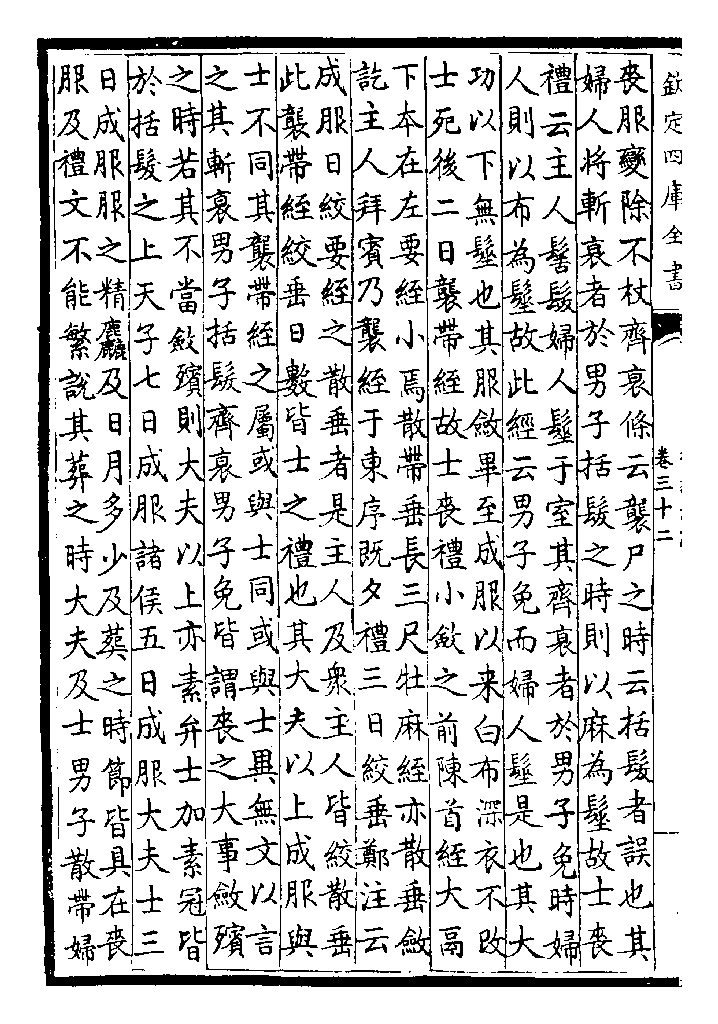 欽定四庫全書
卷三十二
喪服變除不杖齊衰條云襲尸之時云括髮者誤也其
婦人將斬衰者於男子括髮之時則以麻為髽故士喪
禮云主人髻髮婦人髽于室其齊衰者於男子免時婦
人則以布為髽故此經云男子免而婦人髽是也其大
功以下無髽也其服斂畢至成服以来白布深衣不改
士死後二日襲帶絰故士喪禮小斂之前陳首絰大鬲
下本在左要絰小焉散帶垂長三尺牡麻絰亦散垂斂
訖主人拜賓乃襲絰于東序既夕禮三日絞垂鄭注云
成服日絞要絰之散垂者是主人及衆主人皆絞散垂
此襲帶絰絞垂日數皆士之禮也其大夫以上成服與
士不同其襲帶絰之屬或與士同或與士異無文以言
之其斬衰男子括髮齊衰男子免皆謂喪之大事斂殯
之時若其不當斂殯則大夫以上亦素弁士加素冠皆
於括髮之上天子七日成服諸侯五日成服大夫士三
日成服服之精麤及日月多少及葬之時節皆具在喪
服及禮文不能繁說其葬之時大夫及士男子散帶婦